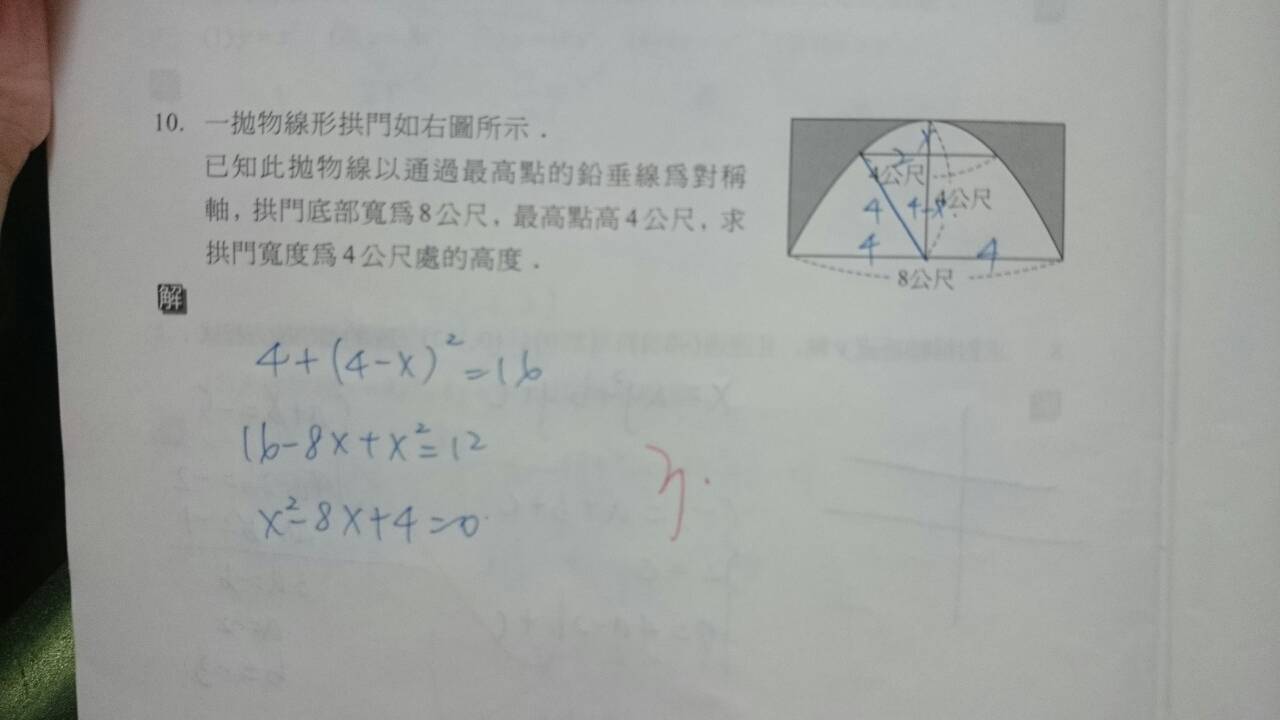 10. 一拋物線形拱門如右圖所示.
已知此拋物線以通過最高點的鉛垂線為對稱
軸，拱門底部寬為8公尺，最高點高4公尺，求
拱門寬度為4公尺處的高度.
x
2
4公尺
4 4-x 4公尺
4 4
8公尺
解
4+(4-x)²=16
16-8x+x²=12
x²-8x+4=0
3.